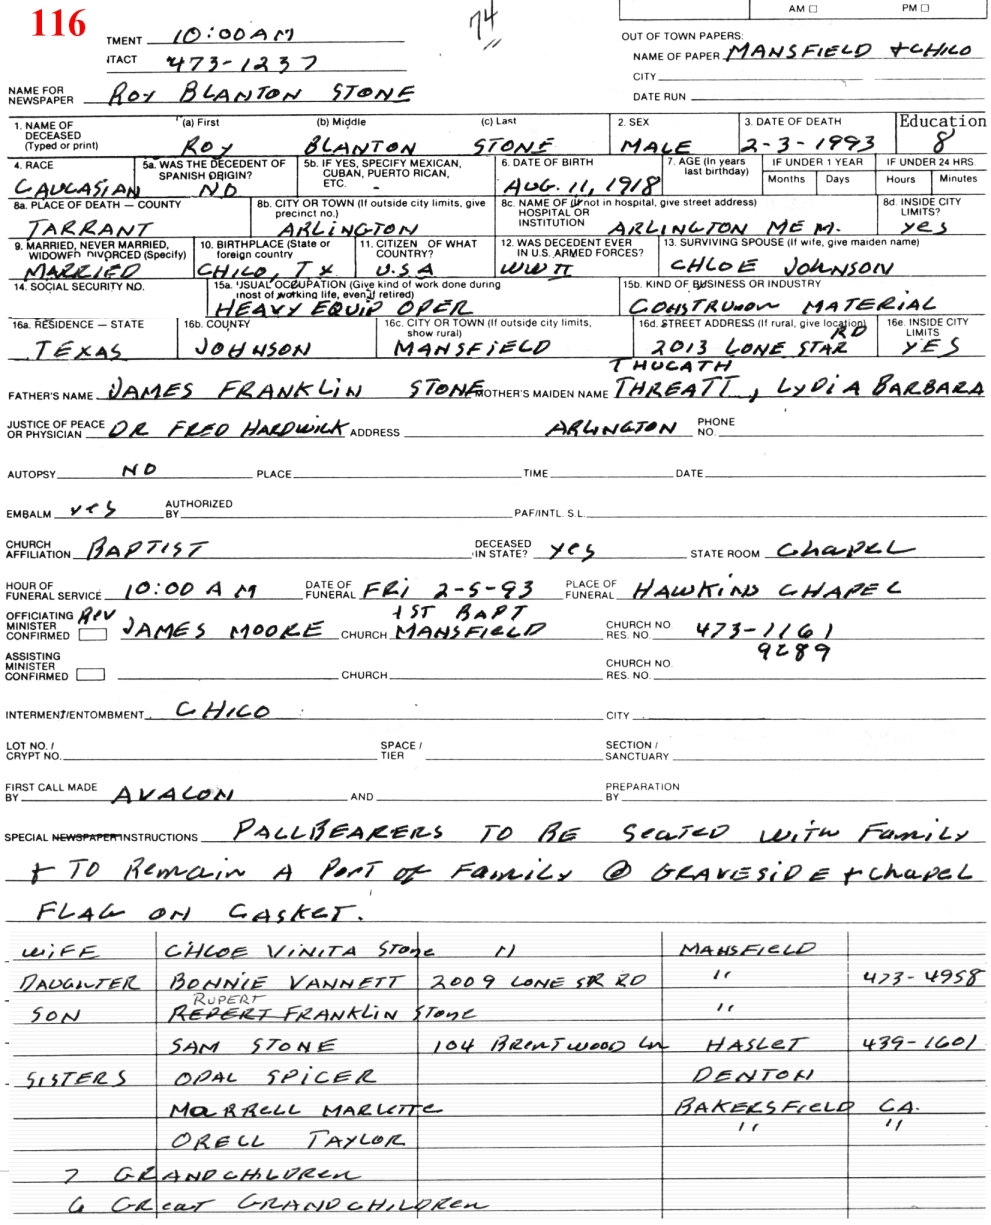 116
74
AM □ PM □
TMENT 10:00 AM
OUT OF TOWN PAPERS:
NAME OF PAPER MANSFIELD + CHICO
ITACT 473-1237
CITY
NAME FOR NEWSPAPER ROY BLANTON STONE
DATE RUN
1. NAME OF DECEASED (Typed or print) (a) First (b) Middle (c) Last 2. SEX 3. DATE OF DEATH Education
ROY BLANTON STONE MALE 2-3-1993 8
4. RACE 5a. WAS THE DECEDENT OF SPANISH ORIGIN? 5b. IF YES, SPECIFY MEXICAN, CUBAN, PUERTO RICAN, ETC. 6. DATE OF BIRTH 7. AGE (In years last birthday) IF UNDER 1 YEAR IF UNDER 24 HRS.
Months Days Hours Minutes
CAUCASIAN NO - AUG. 11, 1918
8a. PLACE OF DEATH — COUNTY 8b. CITY OR TOWN (If outside city limits, give precinct no.) 8c. NAME OF (If not in hospital, give street address) HOSPITAL OR INSTITUTION 8d. INSIDE CITY LIMITS?
TARRANT ARLINGTON ARLINGTON MEM. yes
9. MARRIED, NEVER MARRIED, WIDOWED DIVORCED (Specify) 10. BIRTHPLACE (State or foreign country 11. CITIZEN OF WHAT COUNTRY? 12. WAS DECEDENT EVER IN U.S. ARMED FORCES? 13. SURVIVING SPOUSE (If wife, give maiden name)
MARRIED CHICO, TX U.S.A WW II CHLOE JOHNSON
14. SOCIAL SECURITY NO. 15a. USUAL OCCUPATION (Give kind of work done during most of working life, even if retired) 15b. KIND OF BUSINESS OR INDUSTRY
HEAVY EQUIP OPER MATERIAL
16a. RESIDENCE — STATE 16b. COUNTY 16c. CITY OR TOWN (If outside city limits, show rural) 16d. STREET ADDRESS (If rural, give location) 16e. INSIDE CITY LIMITS
TEXAS JOHNSON MANSFIELD 2013 LONE STAR RD YES
THUGATH
FATHER'S NAME JAMES FRANKLIN STONE MOTHER'S MAIDEN NAME THREATT, LYDIA BARBARA
JUSTICE OF PEACE OR PHYSICIAN DR FRED HARDWICK ADDRESS ARLINGTON PHONE NO.
AUTOPSY NO PLACE TIME DATE
EMBALM yes AUTHORIZED BY PAF/INTL. S.L.
CHURCH AFFILIATION BAPTIST DECEASED IN STATE? yes STATE ROOM CHAPEL
HOUR OF FUNERAL SERVICE 10:00 AM DATE OF FUNERAL FRI 2-5-93 PLACE OF FUNERAL HAWKINS CHAPEL
OFFICIATING MINISTER CONFIRMED Rev JAMES MOORE CHURCH 1ST BAPT MANSFIELD CHURCH NO. RES. NO. 473-1161
9289
ASSISTING MINISTER CONFIRMED CHURCH CHURCH NO. RES. NO.
INTERMENT/ENTOMBMENT CHICO CITY
LOT NO. / CRYPT NO. SPACE / TIER SECTION / SANCTUARY
FIRST CALL MADE BY AVALON AND PREPARATION BY
SPECIAL NEWSPAPER INSTRUCTIONS PALLBEARERS TO BE Seated WITH Family
+ TO Remain A Part of Family @ GRAVESIDE + Chapel
FLAG ON CASKET.
WIFE CHLOE VINITA Stone " MANSFIELD
DAUGHTER BONNIE VANNETT 2009 LONE STR RD " 473-4958
RUPERT
SON REPERT FRANKLIN Stone "
SAM STONE 104 BRENTWOOD Ln HASLET 439-1601
SISTERS OPAL SPICER DENTON
MARRELL MARLETTE BAKERSFIELD CA.
ORELL TAYLOR " "
7 GRANDCHILDREN
6 Great GRANDCHILDREN